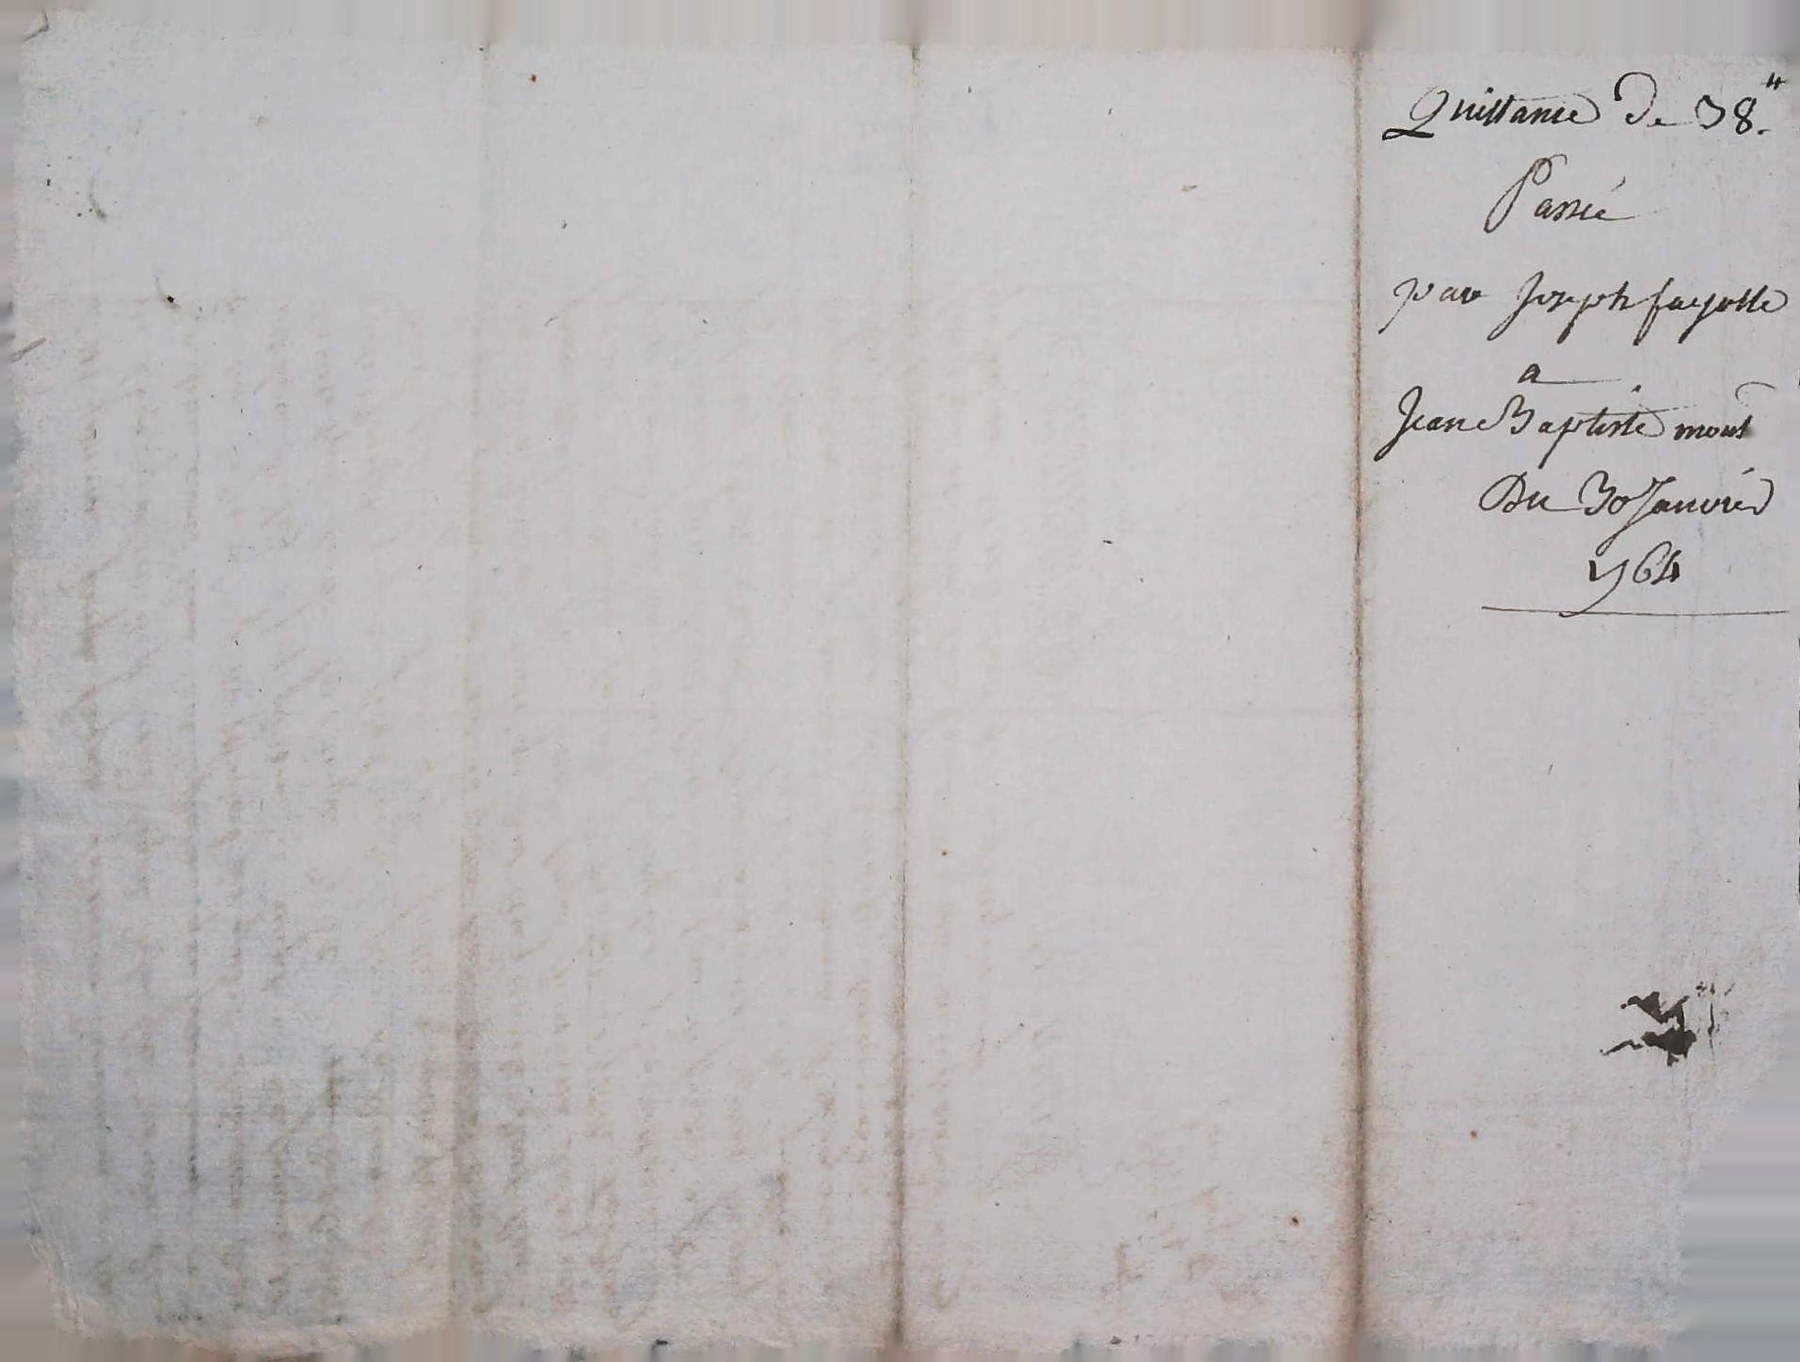 Quittance De 38.#
Passée
par Joseph fayolle
a
Jean Baptiste mont
Du 30 Janvier
1764